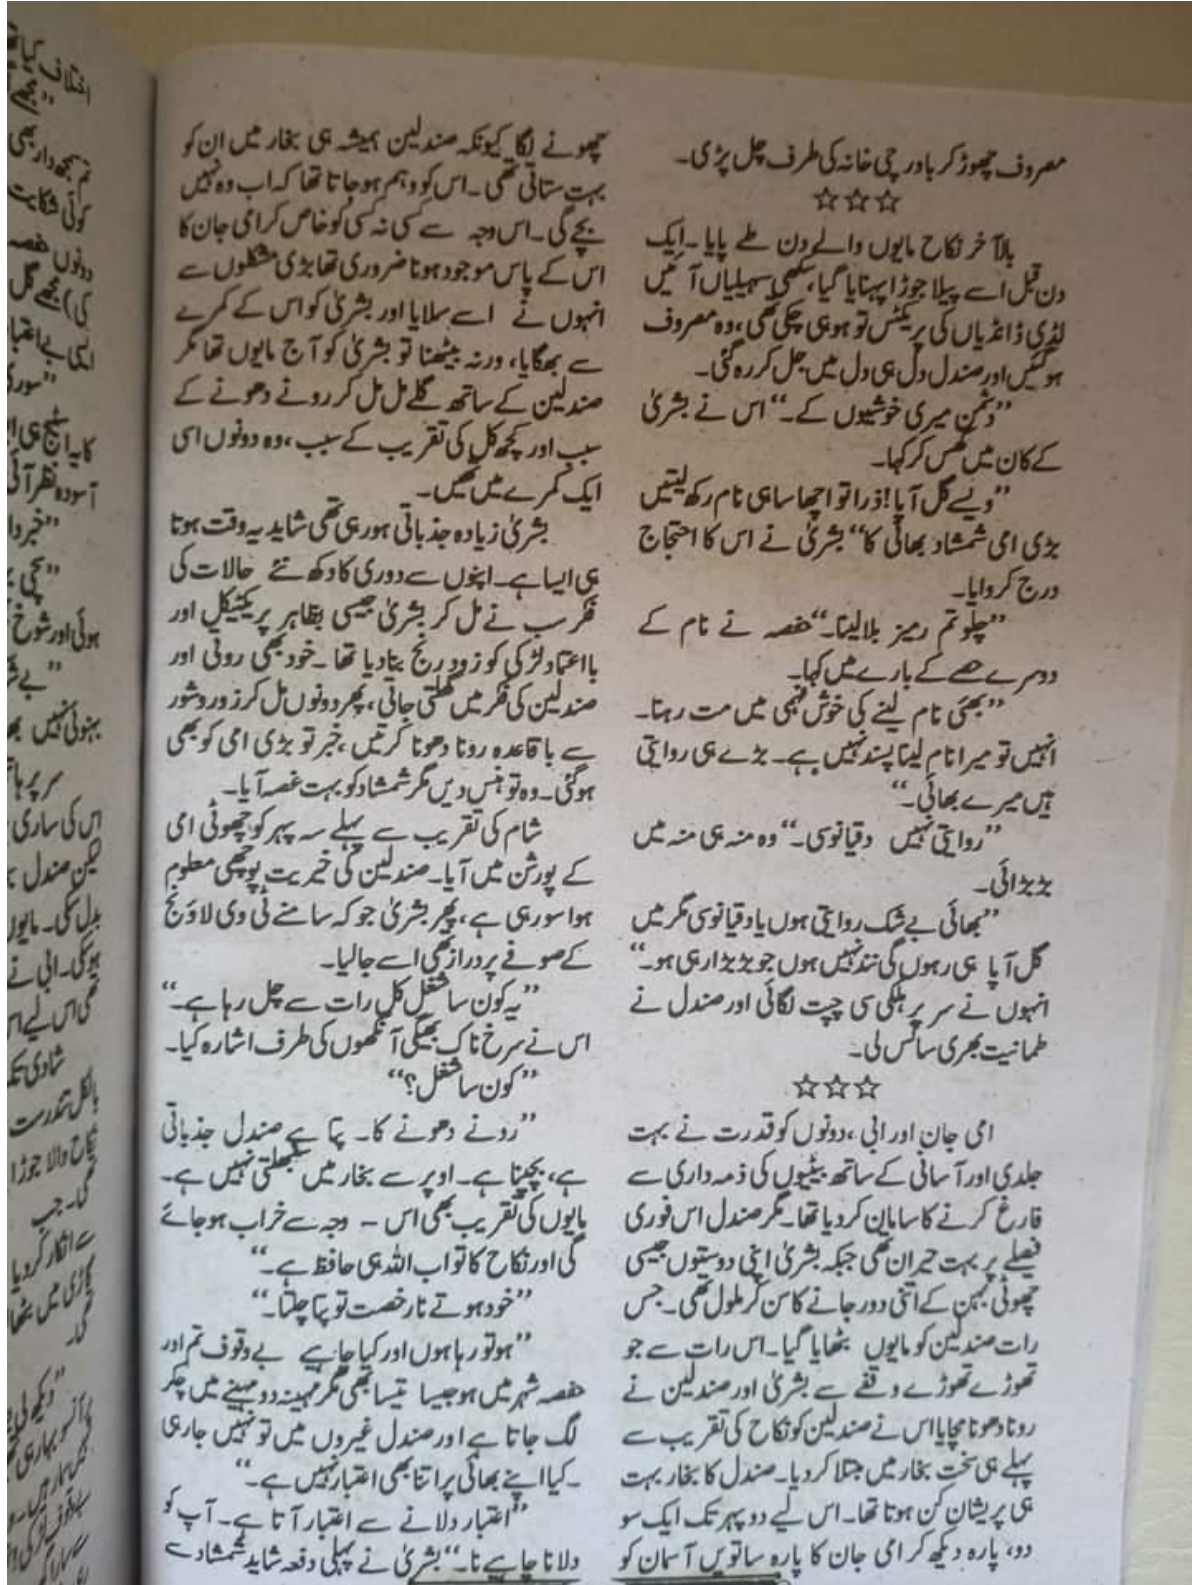 مصروف چھوڑ کر باورچی خانہ کی طرف چل پڑی۔
☆☆☆
بالآخر نکاح مایوں والے دن طے پایا۔ ایک
دن قبل اسے پیلا جوڑا پہنایا گیا، سکھی سہیلیاں آ ئیں
لڈی ڈانڈیاں کی پریکٹس تو ہو ہی چکی تھی، وہ مصروف
ہو گئیں اور صندل دل ہی دل میں جل کر رہ گئی۔
”دشمن میری خوشیوں کے۔“ اس نے بشریٰ
کے کان میں گھس کر کہا۔
”ویسے گل آپا! ذرا تو اچھا سا ہی نام رکھ لیتیں
بڑی امی شمشاد بھائی کا“ بشریٰ نے اس کا احتجاج
درج کروایا۔
”چلو تم رمیز بلا لینا۔“ حفصہ نے نام کے
دوسرے حصے کے بارے میں کہا۔
”بھئی نام لینے کی خوش فہمی میں مت رہنا۔
انہیں تو میرا نام لینا پسند نہیں ہے۔ بڑے ہی روایتی
ہیں میرے بھائی۔“
”روایتی نہیں دقیانوسی۔“ وہ منہ ہی منہ میں
بڑبڑائی۔
”بھائی بے شک روایتی ہوں یا دقیانوسی مگر میں
گل آپا ہی رہوں گی نند نہیں ہوں جو بڑبڑا رہی ہو۔“
انہوں نے سر پر ہلکی سی چپت لگائی اور صندل نے
طمانیت بھری سانس لی۔
☆☆☆
امی جان اور ابی، دونوں کو قدرت نے بہت
جلدی اور آسانی کے ساتھ بیٹیوں کی ذمہ داری سے
فارغ کرنے کا سامان کر دیا تھا۔ مگر صندل اس فوری
فیصلے پر بہت حیران تھی جبکہ بشریٰ اپنی دوستوں جیسی
چھوٹی بہن کے اتنی دور جانے کا سن کر ملول تھی۔ جس
رات صندلین کو مایوں بٹھایا گیا۔ اس رات سے جو
تھوڑے تھوڑے وقفے سے بشریٰ اور صندلین نے
رونا دھونا مچایا اس نے صندلین کو نکاح کی تقریب سے
پہلے ہی سخت بخار میں مبتلا کر دیا۔ صندل کا بخار بہت
ہی پریشان کن ہوتا تھا۔ اس لیے دوپہر تک ایک سو
دو، پارہ دیکھ کر امی جان کا پارہ ساتویں آسمان کو
چھونے لگا کیونکہ صندلین ہمیشہ ہی بخار میں ان کو
بہت ستاتی تھی۔ اس کو وہم ہو جاتا تھا کہ اب وہ نہیں
بچے گی۔ اس وجہ سے کسی نہ کسی کو خاص کر امی جان کا
اس کے پاس موجود ہونا ضروری تھا بڑی مشکلوں سے
انہوں نے اسے سلایا اور بشریٰ کو اس کے کمرے
سے بھگایا، ورنہ بیٹھنا تو بشریٰ کو آج مایوں تھا مگر
صندلین کے ساتھ گلے مل مل کر رونے دھونے کے
سبب اور کچھ کل کی تقریب کے سبب، وہ دونوں اسی
ایک کمرے میں تھیں۔
بشریٰ زیادہ جذباتی ہو رہی تھی شاید یہ وقت ہوتا
ہی ایسا ہے۔ اپنوں سے دوری کا دکھ نئے حالات کی
فکر سب نے مل کر بشریٰ جیسی بظاہر پریکٹیکل اور
بااعتماد لڑکی کو زود رنج بنا دیا تھا۔ خود بھی روئی اور
صندلین کی فکر میں گھلتی جاتی، پھر دونوں مل کر زور و شور
سے باقاعدہ رونا دھونا کرتیں، خبر تو بڑی امی کو بھی
ہو گئی۔ وہ تو ہنس دیں مگر شمشاد کو بہت غصہ آیا۔
شام کی تقریب سے پہلے سہ پہر کو چھوٹی امی
کے پورشن میں آیا۔ صندلین کی خیریت پوچھی معلوم
ہوا سو رہی ہے، پھر بشریٰ جو کہ سامنے ٹی وی لاؤنج
کے صوفے پر دراز تھی اسے جا لیا۔
”یہ کون سا شغل کل رات سے چل رہا ہے۔“
اس نے سرخ ناک بھیگی آنکھوں کی طرف اشارہ کیا۔
”کون سا شغل؟“
”رونے دھونے کا۔ پتا ہے صندل جذباتی
ہے، بچپنا ہے۔ اوپر سے بخار میں سنبھلتی نہیں ہے۔
مایوں کی تقریب بھی اس – وجہ سے خراب ہو جائے
گی اور نکاح کا تو اب اللہ ہی حافظ ہے۔“
”خود ہوتے نا رخصت تو پتا چلتا۔“
”ہو تو رہا ہوں اور کیا چاہیے بے وقوف تم اور
حفصہ شہر میں ہو جیسا تیسا بھی مگر مہینہ دو مہینے میں چکر
لگ جاتا ہے اور صندل غیروں میں تو نہیں جا رہی
۔ کیا اپنے بھائی پر اتنا بھی اعتبار نہیں ہے۔“
”اعتبار دلانے سے اعتبار آتا ہے۔ آپ کو
دلانا چاہیے نا۔“ بشریٰ نے پہلی دفعہ شاید شمشاد سے